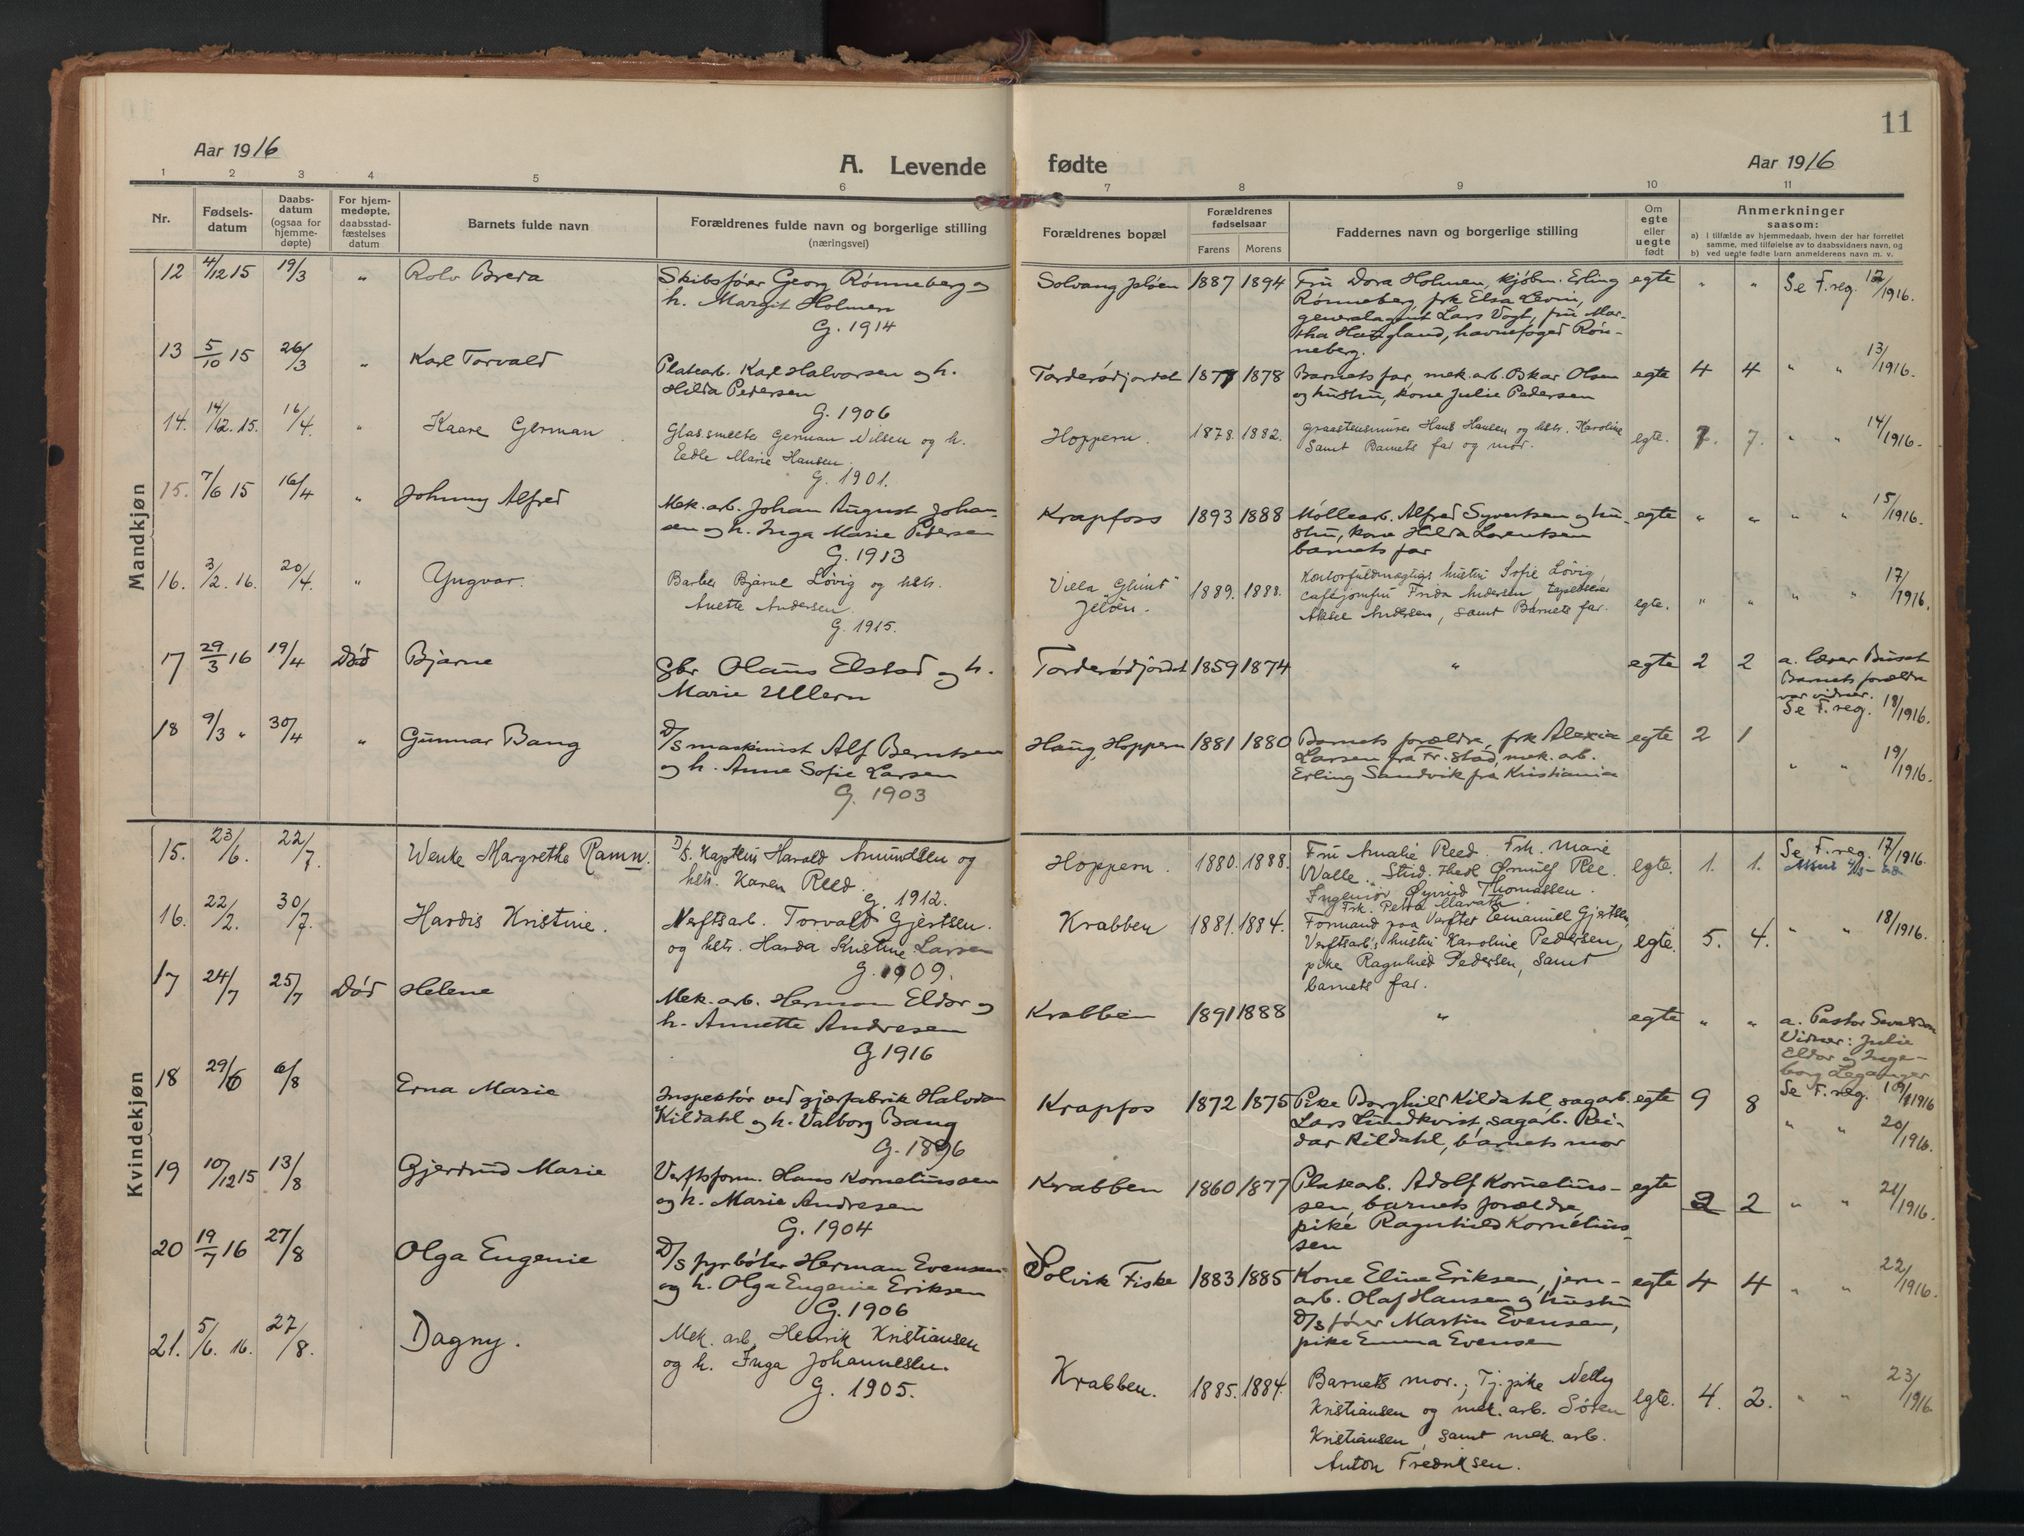 11
Aar 1916
A. Levende
fødte
Aar 1916
1 2 3 4 5 6 7 8 9 10 11
Nr.
Fødsels-
datum
Daabs-
datum
(ogsaa for
hjemme-
døpte)
For hjem-
medøpte,
daabsstad-
fæstelses
datum
Barnets fulde navn
Forældrenes fulde navn og borgerlige stilling
(næringsvei)
Forældrenes bopæl
Forældrenes
fødselsaar
Farens Morens
Faddernes navn og borgerlige stilling
Om
egte
eller
uegte
født
Anmerkninger
saasom:
a) i tilfælde av hjemmedaab, hvem der har forrettet
samme, med tilføielse av to daabsvidners navn, og
b) ved uegte fødte barn anmelderens navn m. v.
Mandkjøn
12 4/12 15 19/3 " Rolv Breda
Skibsfører Georg Rønneberg og
h. Margit Holmen
G. 1914
Solvang Jeløen 1887 1894
Fru Dora Holmen, kjøbm. Erling
Rønneberg, frk Elsa Levin,
generalagent Lars Vogt, fru Mar-
tha Haugland, havnefoged Røn-
neberg.
egte " " Se F. reg. 12/1916.
13 5/10 15 26/3 " Karl Torvald
Platearb. Karl Halvorsen og h.
Hilda Pedersen
G. 1906
Torderødjordet 1877 1878
Barnets far, mek. arb. Oskar Olsen
og hustru, kone Julie Pedersen
egte 4 4 " " 13/1916.
14. 14/12. 15. 16/4. " Kaare German
Glassmester German Nilsen og h.
Eedle Marie Hansen.
G. 1901.
Hoppern. 1878. 1882.
graastensmurer Hans Hansen og hstr. Karoline
Samt Barnets far og mor.
egte. 7. 7. " " 14/1916.
15. 7/6 15 16/4 " Johnny Alfred
Mek. arb. Johan August Johan-
sen og h. Inga Marie Pedersen
G. 1913
Krapfoss 1893 1888
Møllearb. Alfred Syvertsen og hu-
stru, kone Hilda Lorentsen
barnets far
egte " " " " 15/1916.
16. 3/2. 16. 20/4. " Yngvar.
Barber Bjarne Løvig og hstr.
Anette Andersen.
G. 1915.
Villa "Glimt"
Jeløen. 1889. 1888.
Kontorfuldmægtigs hustru Sofie Løvig,
cafejomfru Frida Andersen, tapetserer
Aksel Andersen, samt Barnets far.
egte. " " " " 17/1916.
17 29/3 16 19/4 Død Bjarne
Gbr Olaus Elstad og h.
Marie Ullern
Torderødjordet 1859 1874 "
egte 2 2
a. lærer Buset
Barnets forældre
var vidner.
Se F. reg. 18/1916.
18 9/3 " 30/4 " Gunnar Bang
D/S maskinist Alf Berntsen
og h. Anne Sofie Larsen
G. 1903
Haug, Hoppern 1881 1880
Barnets forældre, frk Alexia
Larsen fra Fr.stad, mek. arb.
Erling Sandvik fra Kristiania
egte 2 1 " " 19/1916.
Kvindekjøn
15. 23/6. 22/7. Wenke Margrethe Ramn.
D/S. Kaptein Harald Amundsen og
hstr. Karen Reed.
G. 1912.
Hoppern. 1880. 1888.
Fru Amalie Reed. Frk. Marie
Walle. Stud. theol Ørnulf Ree.
Ingeniør Øyvind Thomassen.
Frk. Petra Marath.
egte. 1. 1. Se F. reg. 17/1916.
16. 22/2. 30/7. Hardis Kristine.
Verftsarb. Torvald Gjertsen.
og hstr. Harda Kristine Larsen
G. 1909.
Krabben 1881. 1884.
Formand paa Verftet Emanuel Gjertsen,
Verftsarb's hustru Karoline Pedersen,
pike Ragnhild Pedersen, samt
barnets far.
egte. 5. 4. " " 18/1916.
17 24/7 25/7 Død Helene
Mek. arb. Herman Eldor og
h. Annette Andresen
G 1916
Krabben 1891 1888 "
egte " "
a. Pastor Sevaldson
Vidner: Julie
Eldor og Inge-
borg Leganger
Se F. reg. 19/1916
18 29/6 6/8 Erna Marie
Inspektør ved gjærfabrik Halvdan
Kildahl og h. Valborg Bang
G. 1896
Krapfos 1872 1875
Pike Borghild Kildahl, sagarb.
Lars Lundkvist, sagarb. Rei-
dar Kildahl, barnets mor
egte 9 8 " " 20/1916.
19 10/12 15 13/8 Gjertrud Marie
Verftsform. Hans Korneliussen
og h. Marie Andresen
G. 1904
Krabben 1860 1877
Platearb. Adolf Kornelius-
sen, barnets forældre,
pike Ragnhild Kornelius-
sen
egte 2 2 " " 21/1916.
20 19/7 16 27/8 Olga Eugenie
D/S fyrbøter Herman Evensen
og h. Olga Eugenie Eriksen
G. 1906
Solvik Fiske 1883 1885
Kone Eline Eriksen, jern-
arb. Olaf Hansen og hustru
D/S fører Martin Evensen,
pike Emma Evensen
egte 4 4 " " 22/1916.
21. 5/6. 16. 27/8. Dagny.
Mek. arb. Henrik Kristiansen
og h. Inga Johannesen.
G. 1905.
Krabben. 1885. 1884.
Barnets mor.; Tj. pike Nelly
Kristiansen og mek. arb. Søren
Kristiansen, samt mek. arb.
Anton Fredriksen.
egte. 4. 2. " " 23/1916